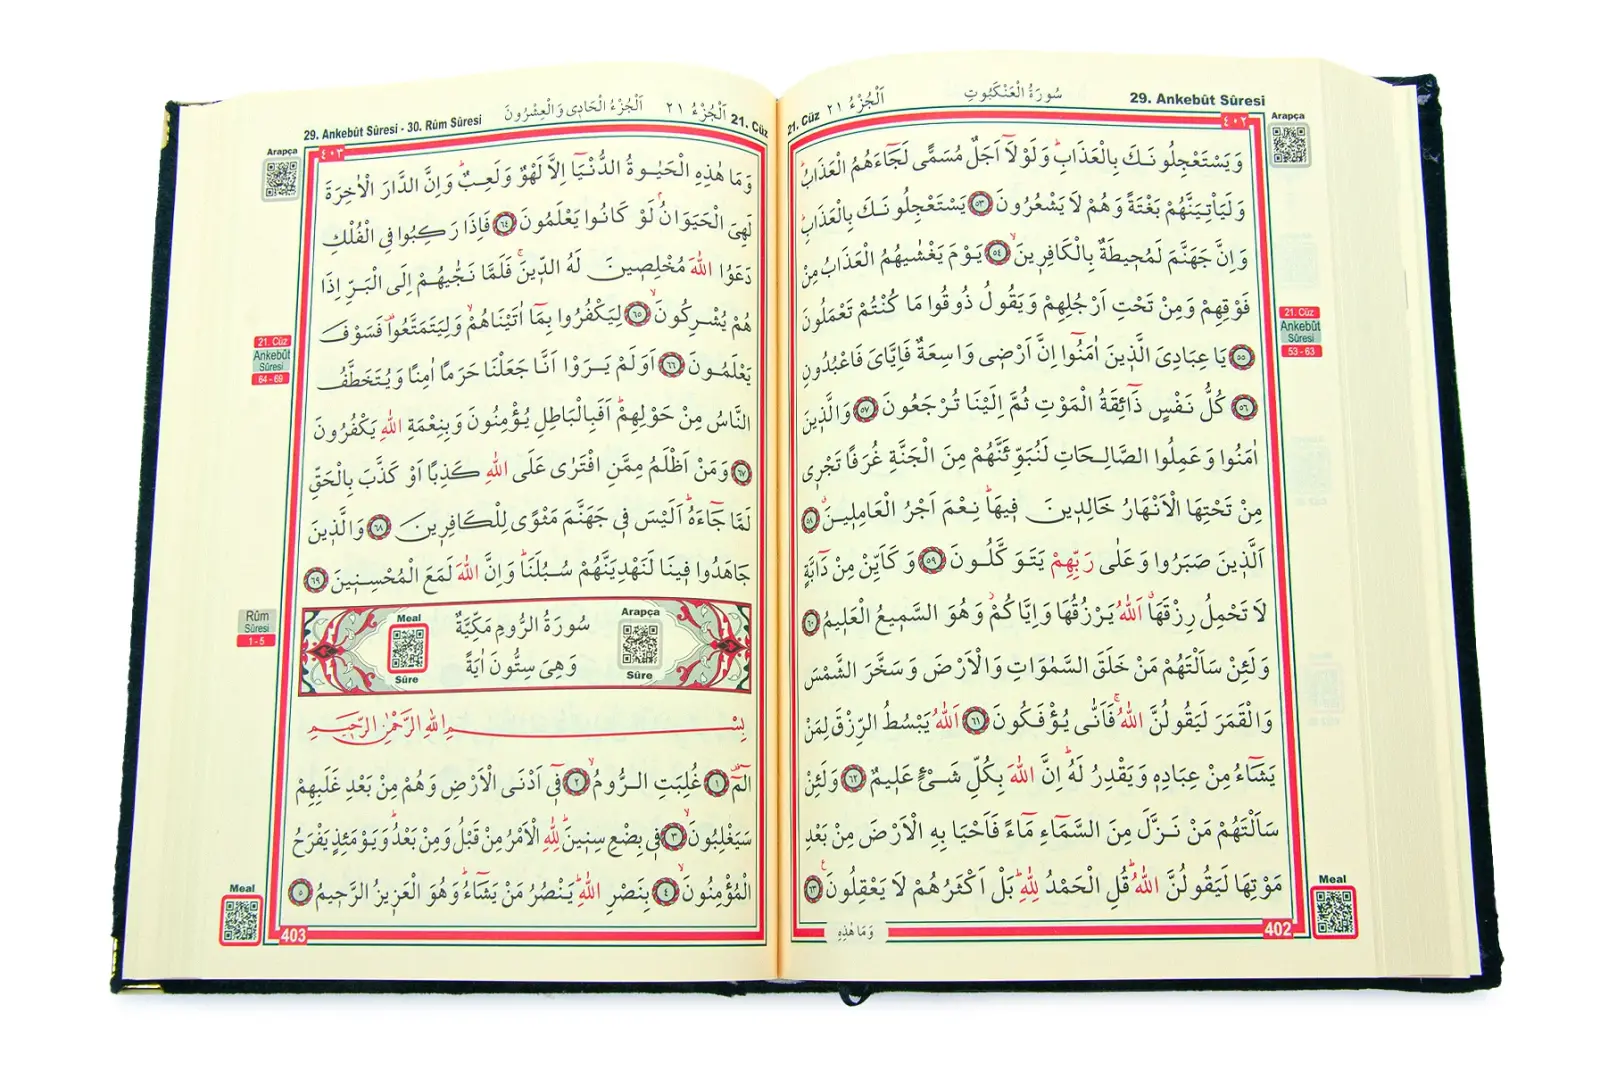 29. Ankebût Sûresi
سُورَةُ الْعَنْكَبُوتِ
اَلْجُزْءُ ٢١
21. Cüz
٤٠٢
Arapça
وَيَسْتَعْجِلُونَكَ بِالْعَذَابِۜ وَلَوْلَٓا اَجَلٌ مُسَمًّى لَجَٓاءَهُمُ الْعَذَابُۜ
وَلَيَأْتِيَنَّهُمْ بَغْتَةً وَهُمْ لَا يَشْعُرُونَ ﴿٥٣﴾ يَسْتَعْجِلُونَكَ بِالْعَذَابِۜ
وَاِنَّ جَهَنَّمَ لَمُح۪يطَةٌ بِالْكَافِر۪ينَۙ ﴿٥٤﴾ يَوْمَ يَغْشٰيهُمُ الْعَذَابُ مِنْ
فَوْقِهِمْ وَمِنْ تَحْتِ اَرْجُلِهِمْ وَيَقُولُ ذُوقُوا مَا كُنْتُمْ تَعْمَلُونَ
﴿٥٥﴾ يَا عِبَادِيَ الَّذ۪ينَ اٰمَنُٓوا اِنَّ اَرْض۪ي وَاسِعَةٌ فَاِيَّايَ فَاعْبُدُونِ
﴿٥٦﴾ كُلُّ نَفْسٍ ذَٓائِقَةُ الْمَوْتِ ثُمَّ اِلَيْنَا تُرْجَعُونَ ﴿٥٧﴾ وَالَّذ۪ينَ
اٰمَنُوا وَعَمِلُوا الصَّالِحَاتِ لَنُبَوِّئَنَّهُمْ مِنَ الْجَنَّةِ غُرَفًا تَجْر۪ي
مِنْ تَحْتِهَا الْاَنْهَارُ خَالِد۪ينَ ف۪يهَاۜ نِعْمَ اَجْرُ الْعَامِل۪ينَۗ ﴿٥٨﴾
اَلَّذ۪ينَ صَبَرُوا وَعَلٰى رَبِّهِمْ يَتَوَكَّلُونَ ﴿٥٩﴾ وَكَاَيِّنْ مِنْ دَٓابَّةٍ
لَا تَحْمِلُ رِزْقَهَاۗ اَللّٰهُ يَرْزُقُهَا وَاِيَّاكُمْۘ وَهُوَ السَّم۪يعُ الْعَل۪يمُ ﴿٦٠﴾
وَلَئِنْ سَاَلْتَهُمْ مَنْ خَلَقَ السَّمٰوَاتِ وَالْاَرْضَ وَسَخَّرَ الشَّمْسَ
وَالْقَمَرَ لَيَقُولُنَّ اللّٰهُۚ فَاَنّٰى يُؤْفَكُونَ ﴿٦١﴾ اَللّٰهُ يَبْسُطُ الرِّزْقَ لِمَنْ
يَشَٓاءُ مِنْ عِبَادِه۪ وَيَقْدِرُ لَهُۜ اِنَّ اللّٰهَ بِكُلِّ شَيْءٍ عَل۪يمٌ ﴿٦٢﴾ وَلَئِنْ
سَاَلْتَهُمْ مَنْ نَزَّلَ مِنَ السَّمَٓاءِ مَٓاءً فَاَحْيَا بِهِ الْاَرْضَ مِنْ بَعْدِ
مَوْتِهَا لَيَقُولُنَّ اللّٰهُۜ قُلِ الْحَمْدُ لِلّٰهِۜ بَلْ اَكْثَرُهُمْ لَا يَعْقِلُونَ۟ ﴿٦٣﴾
21. Cüz
Ankebût
Sûresi
53 - 63
Meal
402
وَمَا هٰذِهِ
21. Cüz
اَلْجُزْءُ ٢١
اَلْجُزْءُ الْحَاد۪ي وَالْعِشْرُونَ
29. Ankebût Sûresi - 30. Rûm Sûresi
٤٠٣
Arapça
وَمَا هٰذِهِ الْحَيٰوةُ الدُّنْيَٓا اِلَّا لَهْوٌ وَلَعِبٌۜ وَاِنَّ الدَّارَ الْاٰخِرَةَ
لَهِيَ الْحَيَوَانُۢ لَوْ كَانُوا يَعْلَمُونَ ﴿٦٤﴾ فَاِذَا رَكِبُوا فِي الْفُلْكِ
دَعَوُا اللّٰهَ مُخْلِص۪ينَ لَهُ الدّ۪ينَۚ فَلَمَّا نَجّٰيهُمْ اِلَى الْبَرِّ اِذَا
هُمْ يُشْرِكُونَۙ ﴿٦٥﴾ لِيَكْفُرُوا بِمَٓا اٰتَيْنَاهُمْۙ وَلِيَتَمَتَّعُوا۠ فَسَوْفَ
يَعْلَمُونَ ﴿٦٦﴾ اَوَلَمْ يَرَوْا اَنَّا جَعَلْنَا حَرَمًا اٰمِنًا وَيُتَخَطَّفُ
النَّاسُ مِنْ حَوْلِهِمْۜ اَفَبِالْبَاطِلِ يُؤْمِنُونَ وَبِنِعْمَةِ اللّٰهِ يَكْفُرُونَ
﴿٦٧﴾ وَمَنْ اَظْلَمُ مِمَّنِ افْتَرٰى عَلَى اللّٰهِ كَذِبًا اَوْ كَذَّبَ بِالْحَقِّ
لَمَّا جَٓاءَهُۜ اَلَيْسَ ف۪ي جَهَنَّمَ مَثْوًى لِلْكَافِر۪ينَ ﴿٦٨﴾ وَالَّذ۪ينَ
جَاهَدُوا ف۪ينَا لَنَهْدِيَنَّهُمْ سُبُلَنَاۜ وَاِنَّ اللّٰهَ لَمَعَ الْمُحْسِن۪ينَ ﴿٦٩﴾
21. Cüz
Ankebût
Sûresi
64 - 69
Arapça
Sûre
سُورَةُ الرُّومِ مَكِّيَّةٌ
وَهِيَ سِتُّونَ اٰيَةً
Meal
Sûre
Rûm
Sûresi
1 - 5
بِسْمِ اللّٰهِ الرَّحْمٰنِ الرَّح۪يمِ
الٓمٓۜ ﴿١﴾ غُلِبَتِ الرُّومُۙ ﴿٢﴾ ف۪ٓي اَدْنَى الْاَرْضِ وَهُمْ مِنْ بَعْدِ غَلَبِهِمْ
سَيَغْلِبُونَۙ ﴿٣﴾ ف۪ي بِضْعِ سِن۪ينَۜ لِلّٰهِ الْاَمْرُ مِنْ قَبْلُ وَمِنْ بَعْدُۜ وَيَوْمَئِذٍ يَفْرَحُ
الْمُؤْمِنُونَۙ ﴿٤﴾ بِنَصْرِ اللّٰهِۜ يَنْصُرُ مَنْ يَشَٓاءُۜ وَهُوَ الْعَز۪يزُ الرَّح۪يمُ ﴿٥﴾
Meal
403